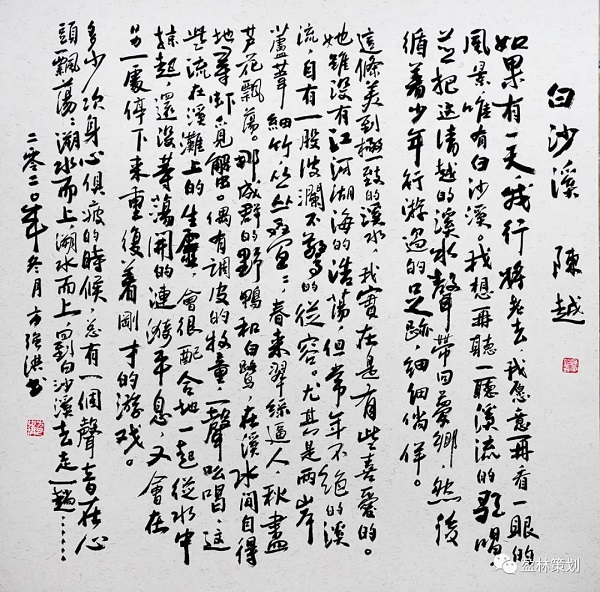 白沙溪 陳越
如果有一天我行將老去，我愿意再看一眼的
風景，唯有白沙溪。我想再聽一聽溪流的歌唱，
並把这清越的溪水聲帶回夢鄉，然後
循着少年行游過的足跡，細細徜徉。
這條美到極致的溪水，我實在是有些喜愛的。
她雖没有江河湖海的浩蕩，但常年不絶的溪
流，自有一股波瀾不驚的從容。尤其是两岸
蘆葦細竹丛丛，春来翠綠逼人，秋盡
芦花飄蕩。那成群的野鴨和白鷺，在溪水間自得
地尋虾覓蟹。偶有調皮的牧童一聲吆唱，這
些流在溪灘上的生靈會很配合地一起從水中
掠起，還没等蕩開的漣漪平息，又會在
另一處停下来重復着剛才的游戏。
多少次身心俱疲的時候，总有一個聲音在心
頭飄蕩：溯水而上，溯水而上，回到白沙溪去走一趟……
二零二〇年冬月 方强洪书
盆林策划